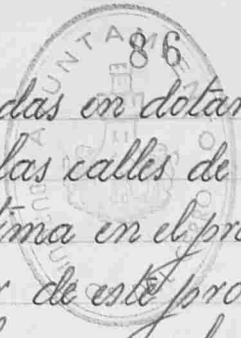 86
das en dotar
las calles de
tima en el pr
r de este pro